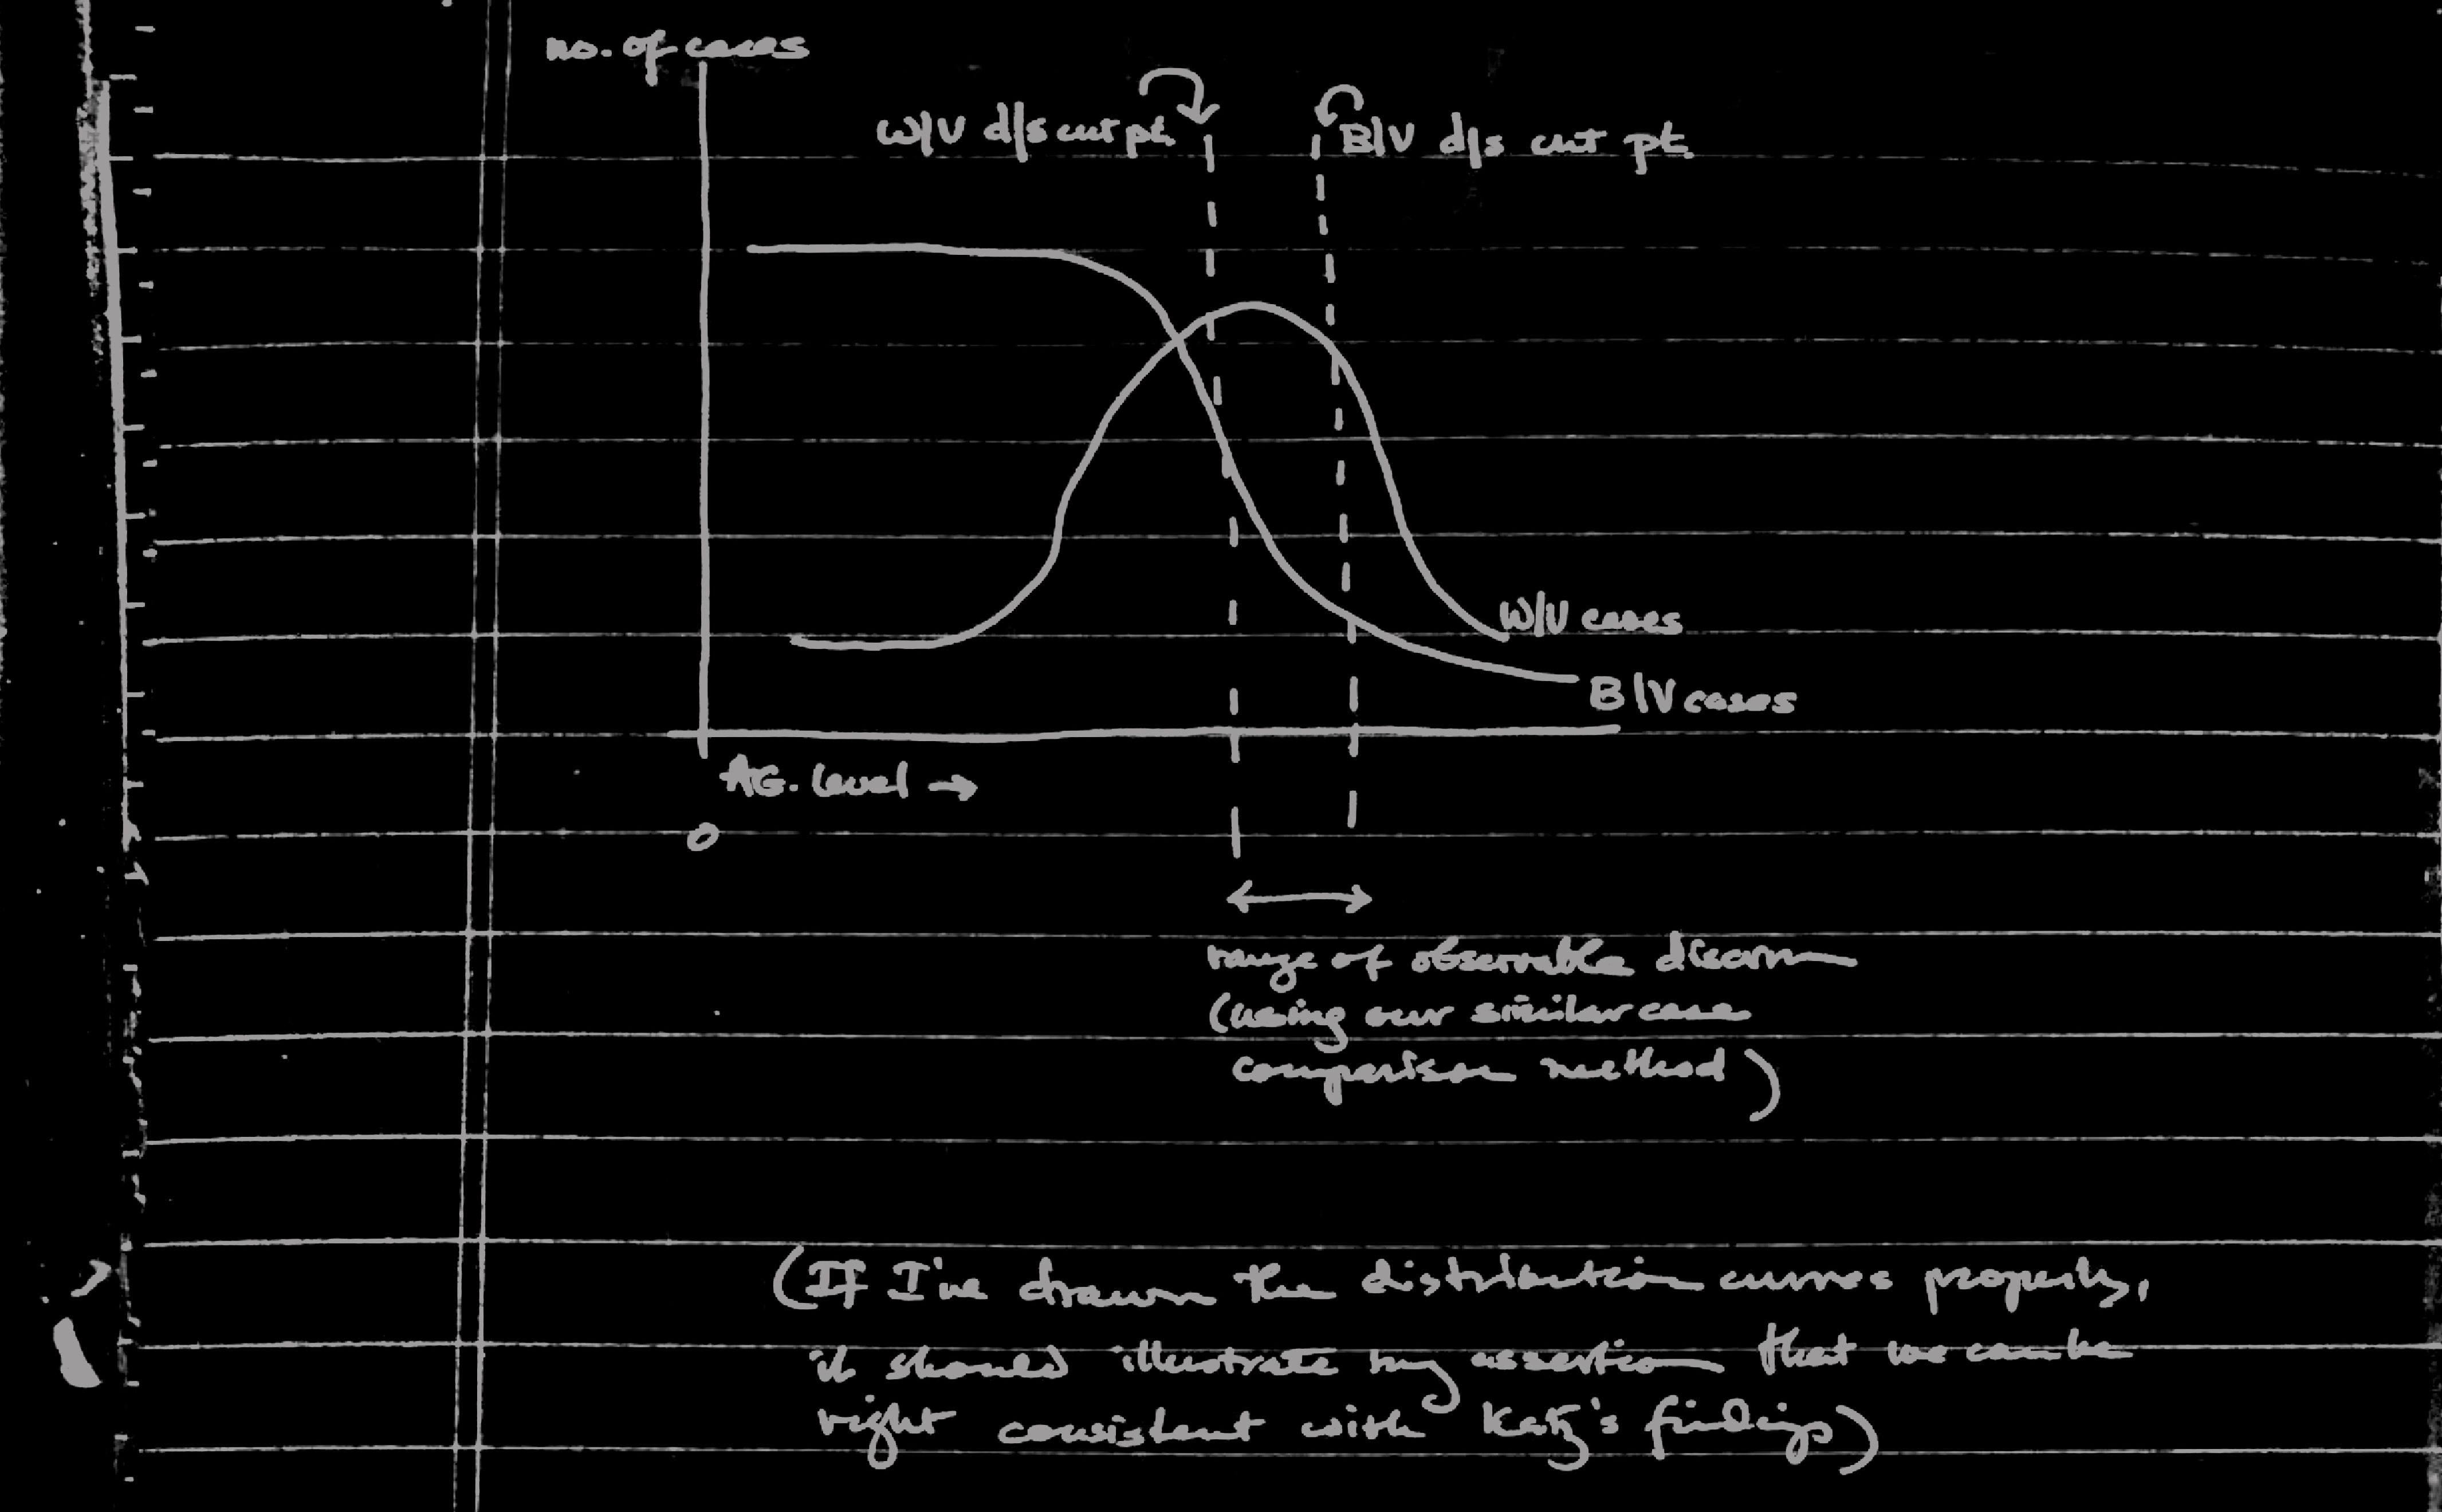 no. of cases
W/V d/s cut pt.
B/V d/s cut pt.
W/V cases
B/V cases
AG. level →
0
range of observable discrim
(using our similar case
comparison method)
(If I've drawn the distribution curves properly,
it should illustrate my assertion that we can be
right consistent with Katz's findings)